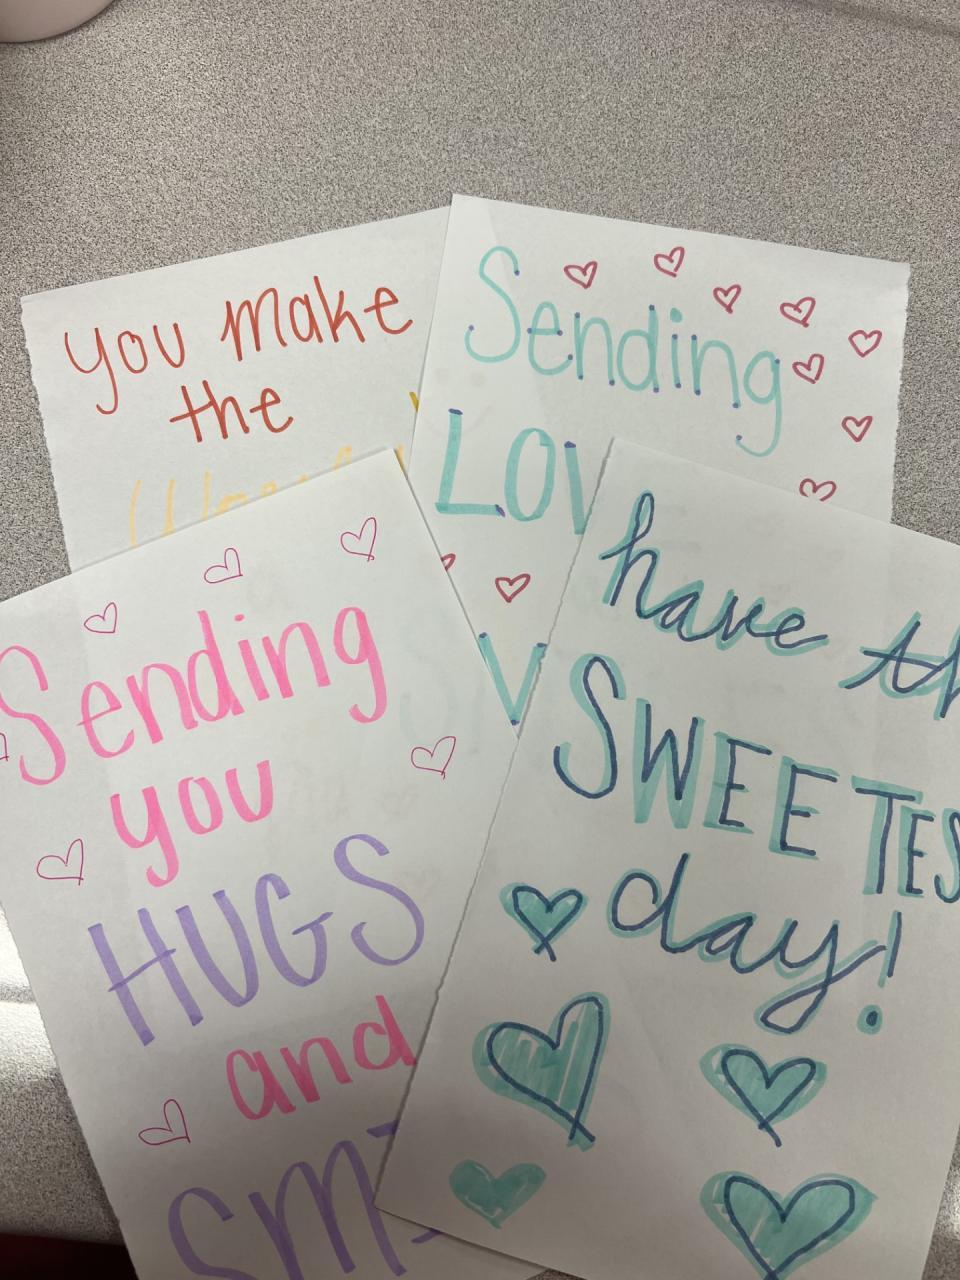 you make
the
Sending
LOV
V
Sending
you
HUGS
and
SMI
have th
SWEETES
day!